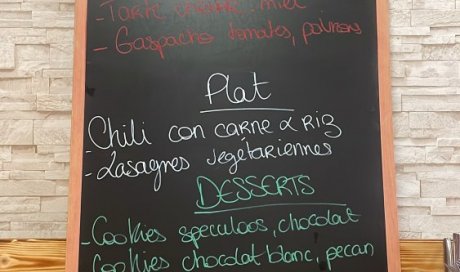 - Tarte chèvre miel
- Gaspacho tomates, poivrons
Plat
- Chili con carne & RIZ
- Lasagnes végétariennes
DESSERTS
- Cookies speculoos, chocolat
Cookies chocolat blanc, pecan